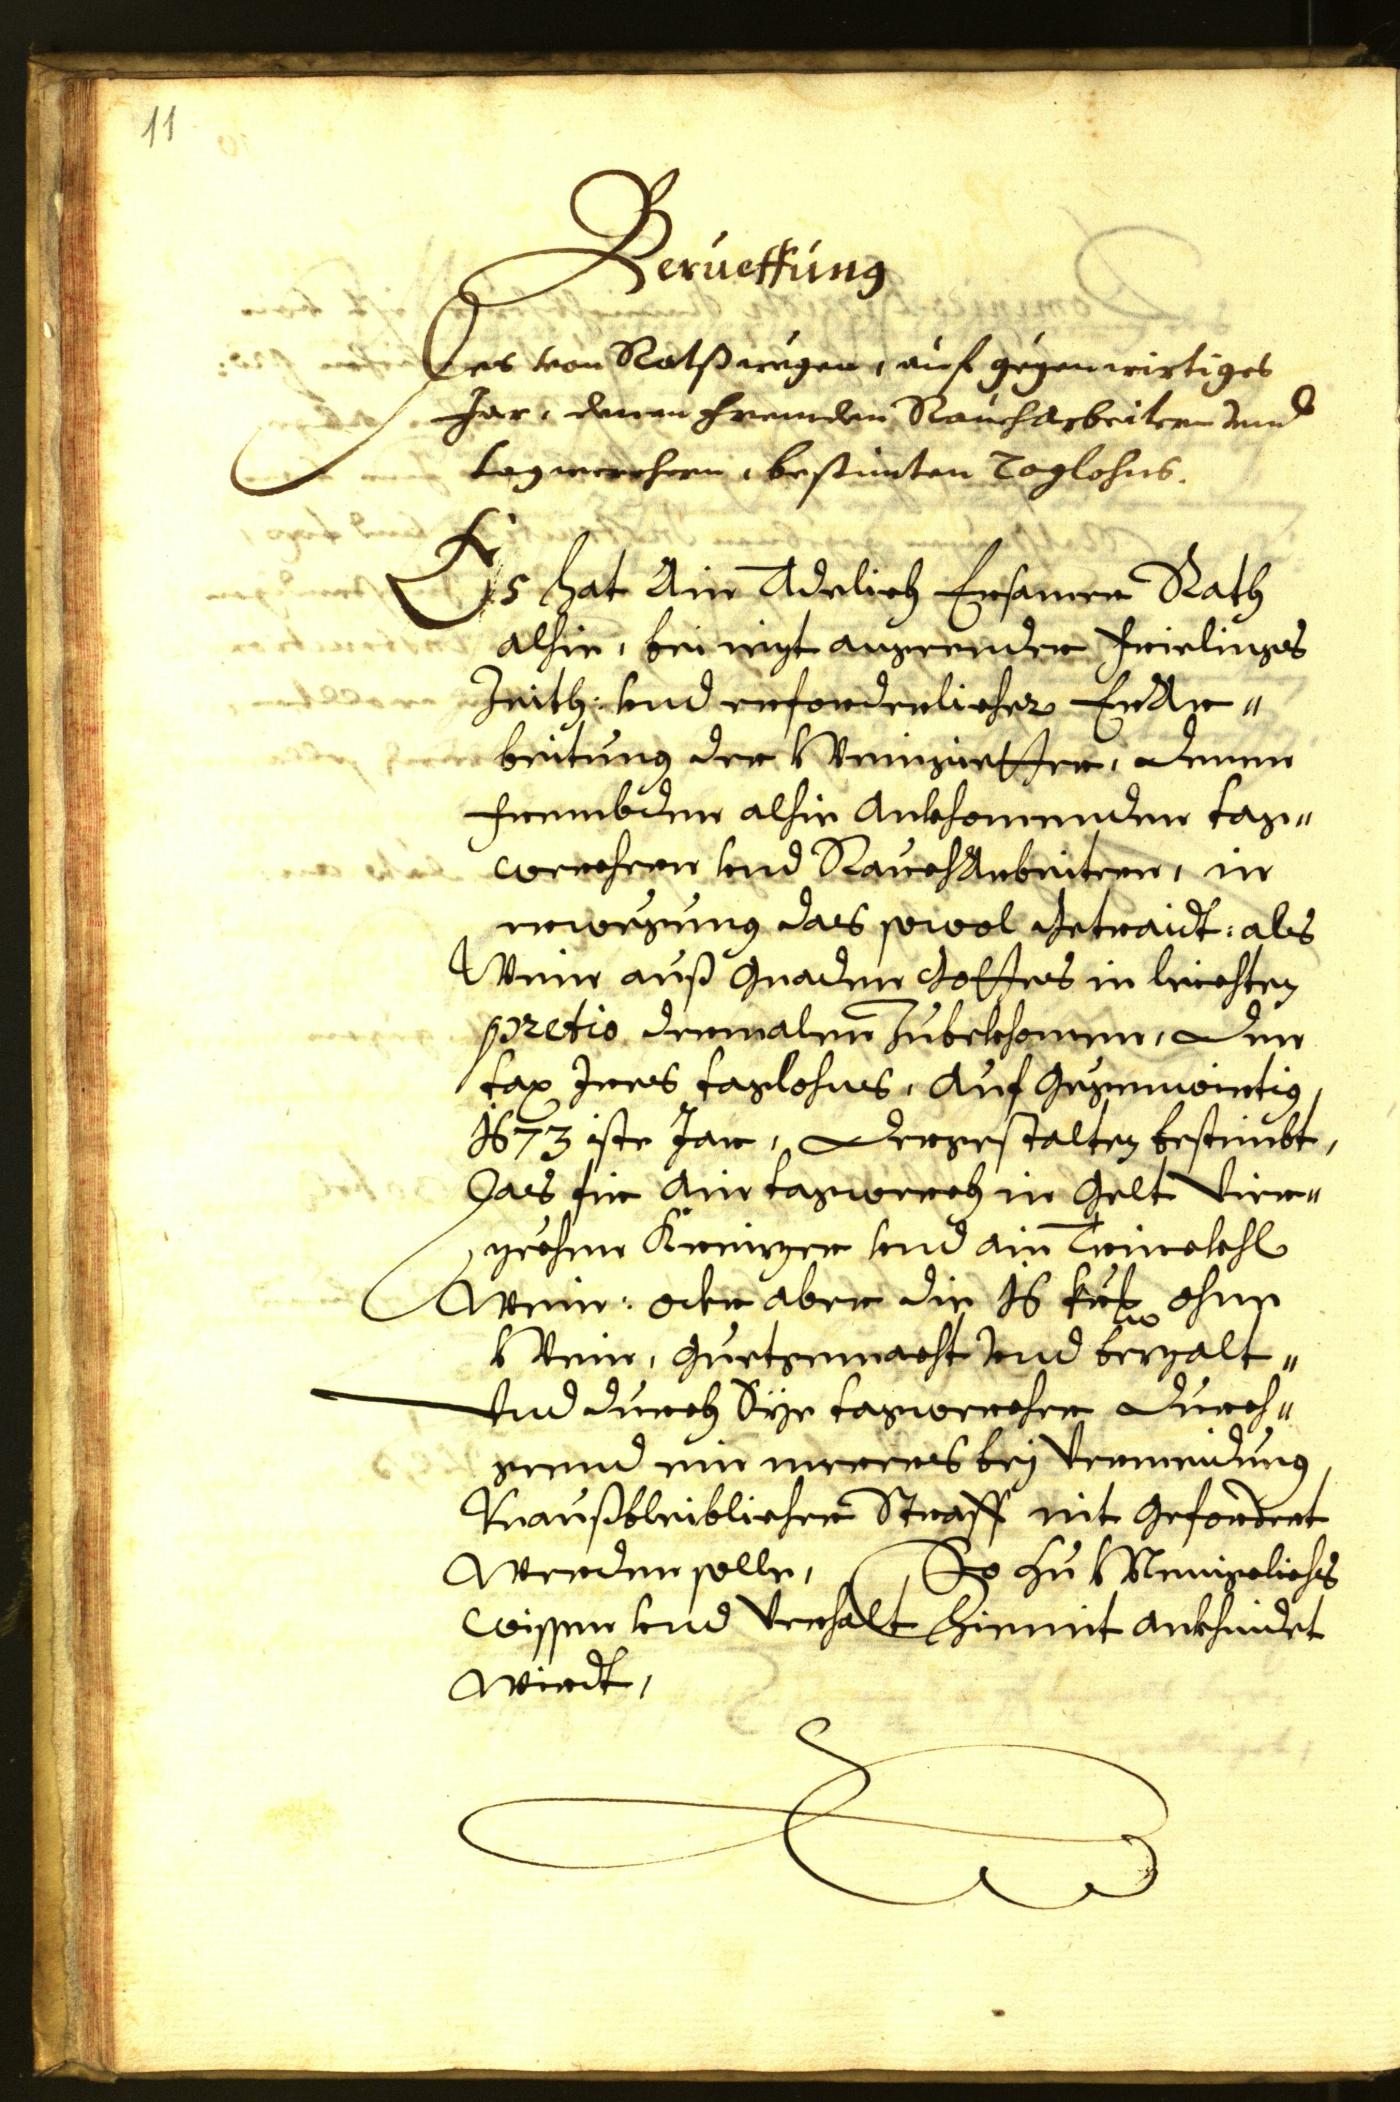 11
Berueffung
Des von Rats wegen, auf gegenwirtiges
Jar, denen frembden Rauch Arbeitern vnd
tagwerchern, bestimten Taglohns.
Es hat Ain Adelich Ersamer Rath
alhie, bei iezt angeender Frielings
Zeith: vnd erforderlicher ErAr"
beitung der Weingietter, denen
frembden alhie Ankhomenden tag"
werchern vnd RauchArbeitern, in
erwegung das sowol Getraidt: als
Wein auß Gnaden Gottes in leichten
pretio dermalen Zubekhomen, Den
tax Jres taglohns, Auf Gegenwirtig
1673 iste Jar, Dergestalten bestimbt,
Das fir Ain tagwerch in Gelt Vier"
zechen Kreizer vnd ain Trinckhl
Wein: oder aber die 16 kr ohne
Wein, Guetgemacht vnd bezalt"
Vnd durch Sÿe tagwercher Durch"
geend ein mereres bej Vermeidung
Vnaußbleiblicher Straff nit Gefordert
Werden solle, So zu Menigclichs
wissen vnd Verhalt hiemit ankhindet
Wirdt,